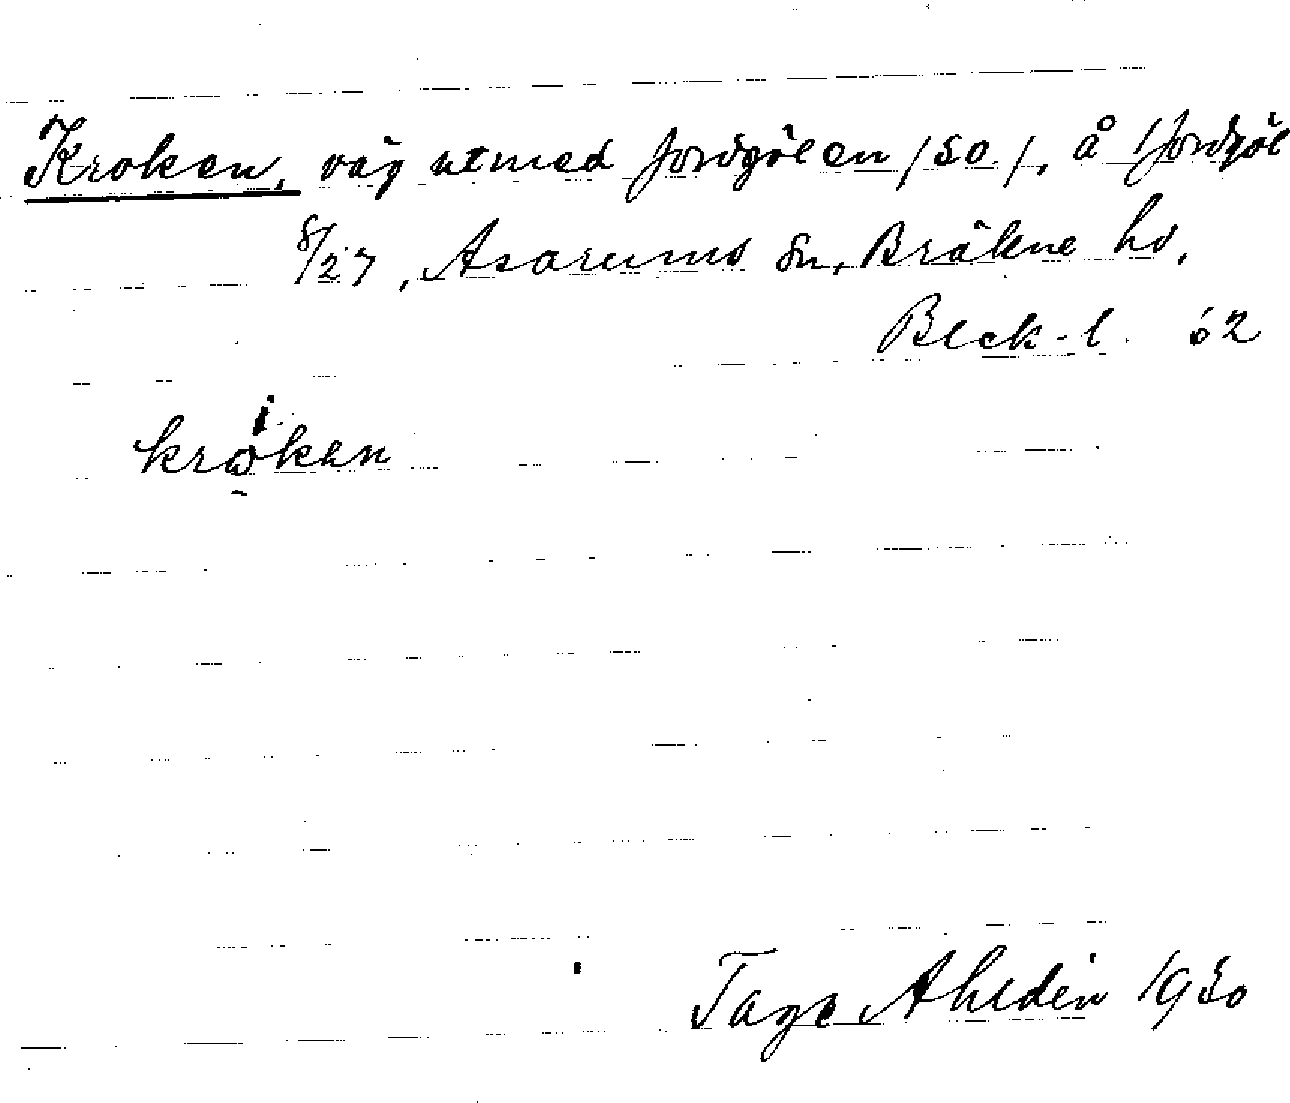 Kroken, väg utmed Jordgölen /50/, å Jordgöl
8/27, Asarums sn, Bräkne hd.
Bleck-l. 62
krokan
Tage Ahldén 1930